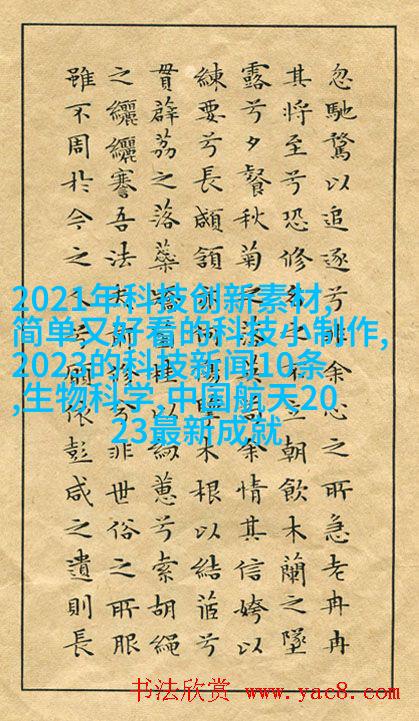 忽馳騖以追逐兮非余心之所急老冉冉
其將至兮恐修名之立朝飲木蘭之墜
露兮夕餐秋菊之落英余情其信姱以
練要兮長顑頷何傷擥木根以結茞兮
貫薜荔之落蘂矯菌桂以紉蕙兮索胡繩
之纚纚謇吾法夫前修兮非世俗之所服
雖不周於今之人兮願依彭咸之遺則長
2021年科技创新素材,
简单又好看的科技小制作,
2023的科技新闻10条
,生物科学,中国航天20
23最新成就
书法欣赏 www.yac8.com